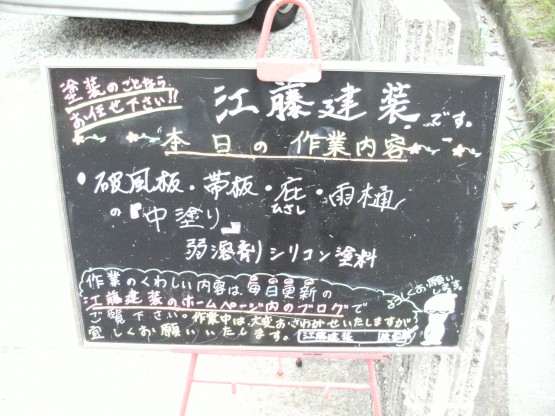 塗装のことなら
お任せ下さい!!
江藤建装です。
本日の作業内容
・破風板・帯板・庇・雨樋
ひさし
の『中塗り』
弱溶剤シリコン塗料
作業のくわしい内容は、毎日更新の
江藤建装のホームページ内のブログで
ご覧下さい。作業中は、大変おさわがせいたしますが
宜しくお願いいたします。
江藤建装
よろしくお願い
します。